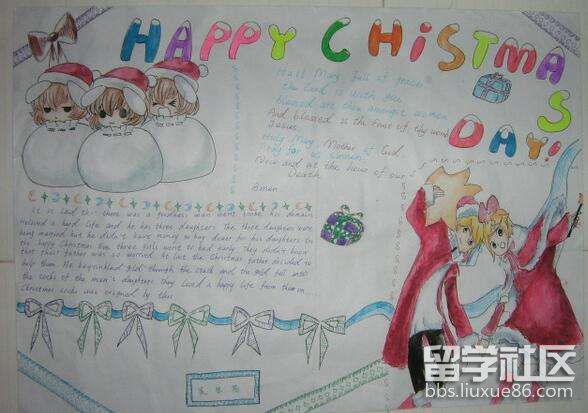 HAPPY CHISTMAS
DAY!
Hail Mary, full of grace
the Lord is with thee
blessed are thou amongst women
And blessed is the fruit of thy womb
Jesus.
Holy Mary, Mother of God
for us sinners
Now and at the hour of our
Death
Amen
It is said there was a kindness man went broke his domain
a hard life and he has three daughters. The three daughters were
being married, but he didn't have money to buy dower for his daughters. On
the happy Christmas Eve three girls went to bed early. They didn't know
that their father was so worried. At last the Christmas father decided to
help them. He sprinkled gold through the and the gold fell into
the socks of the man's daughters, they lived a happy life from then on.
Christmas socks was origined by this
留学社区
bbs.liuxue86.com